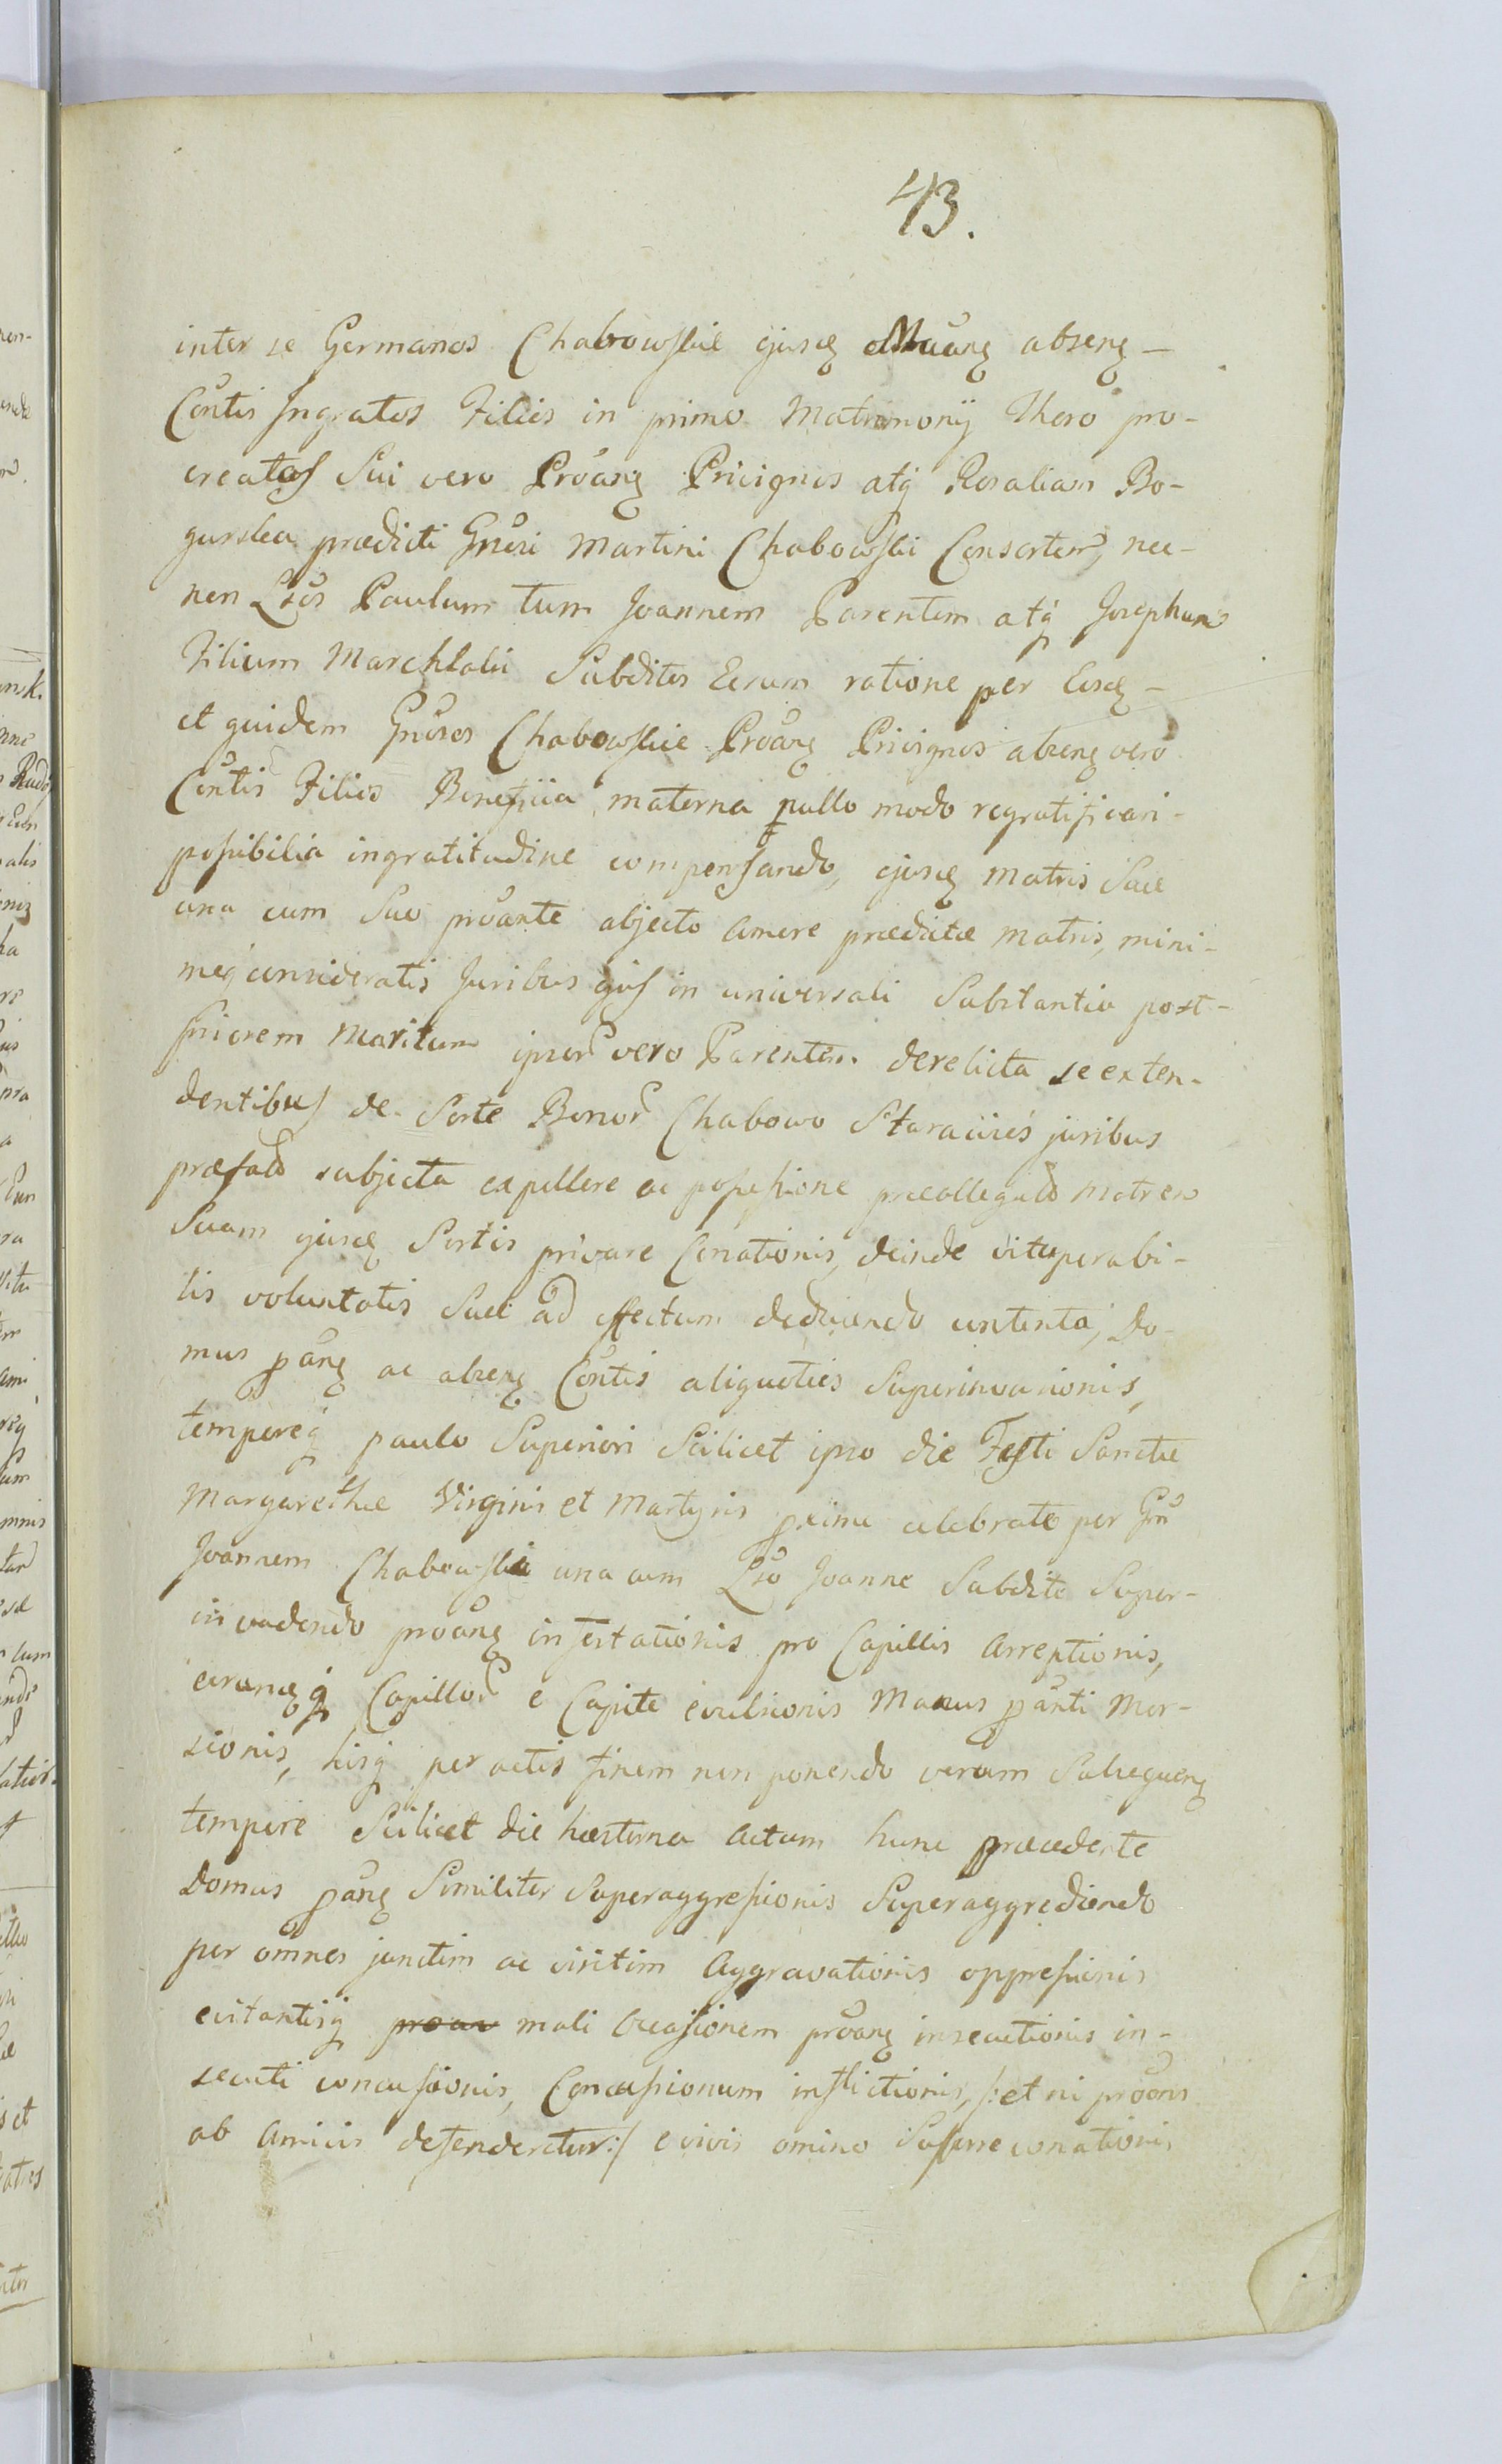 43.
inter se Germanos Chabowskie ejusq absenq -
Contis Ingratos Filios in primo Matrimonij Thoro pro-
creatos Sui vero Proãnq Privignos atq Rosaliam Bo-
gurska prædicti Gnõsi Martini Chabowski Consortem, nec-
non Lsõs Paulum tum Joannem Parentem atq Josephum
Filium Marchlalii Subditos Eorum ratione per Eosq -
et quidem Gnõsos Chabowskie Proãnq Privignos absenq vero
Cõntis Filios Beneficia materna nullo modo regratificari-
possibilia ingratitudine compensando, ejusq Matris Suæ
una cum Suo proãnte abjecto Amore prædictæ Matris, mini-
meq consideratis Juribus ejus in universali Substantia post-
priorem Maritum ipsor vero Parentem derelicta se exten-
dentibus de Sorte Bonor Chabowo Stara juribus
præfatis subjecta expellere ac possessione præallegata Matrem
Suam ejusq Sortis privare Conationis, deinde vituperabi-
lis voluntatis Suæ ad effectum deducendo contenta, Do-
mus pãnq ac absenq Cõntis aliquoties Superinvasionis,
temporeq paulo Superiori Scilicet ipso die Festi Sanctæ
Margarethæ Virginis et Martyris pxime celebrato per Gnũ
Joannem Chabowski una cum Lsõ Joanne Subdito Super-
invadendo proãnq infestationis pro Capillis Arreptionis,
eorumq q Capillor e Capite evulsionis Manus pãnti Mor-
sionis, hisq peractis finem non ponendo verum Subsequenq
tempore Scilicet die hesterna Actum hunc præcedente
Domus pãnq Similiter Superaggressionis Superaggrediendo
per omnes junctim ac viritim Aggravationis oppressionis
evitantisq proan mali Occasionem proãnq insecutionis in-
secuti concussionis, Concussionum inflictionis, /: et ni proõns
ab Amicis defenderetur :/ e vivis omino conationis